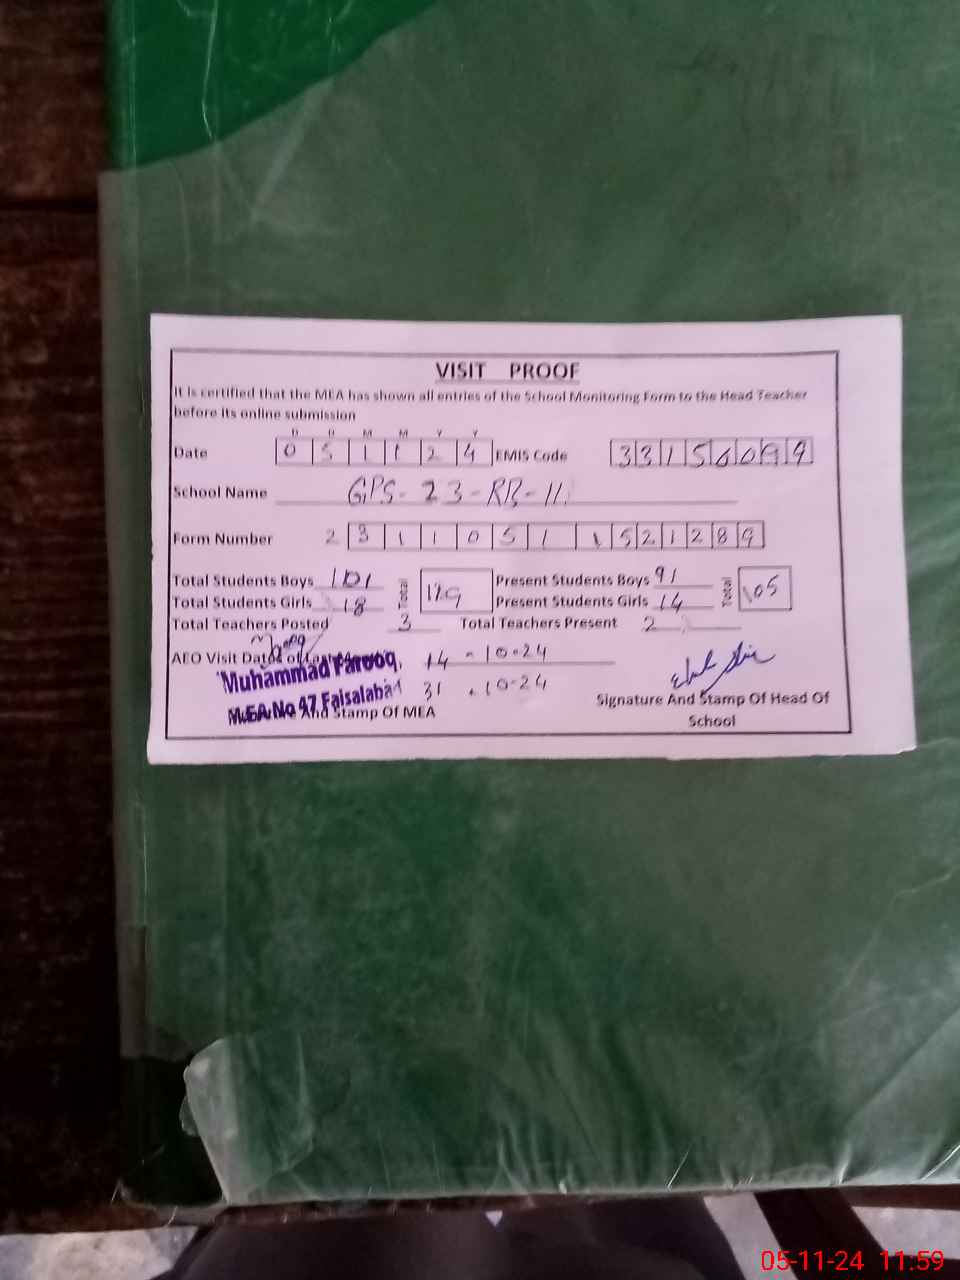 VISIT PROOF
It is certified that the MEA has shown all entries of the School Monitoring Form to the Head Teacher
before its online submission
D D M M Y Y
Date 0 5 1 1 2 4 EMIS Code 3 3 1 5 6 0 9 9
School Name GPS-23-RB-II
Form Number 2 3 1 1 0 5 1 1 5 2 1 2 8 9
Total Students Boys 101 Total 119 Present Students Boys 91 Total 105
Total Students Girls 18 Present Students Girls 14
Total Teachers Posted 3 Total Teachers Present 2
AEO Visit Dates of 14-10-24
Muhammad Farooq
31-10-24
M.EA.No 47 Faisalabad
And Stamp Of MEA
Signature And Stamp Of Head Of
School
05-11-24 11:59